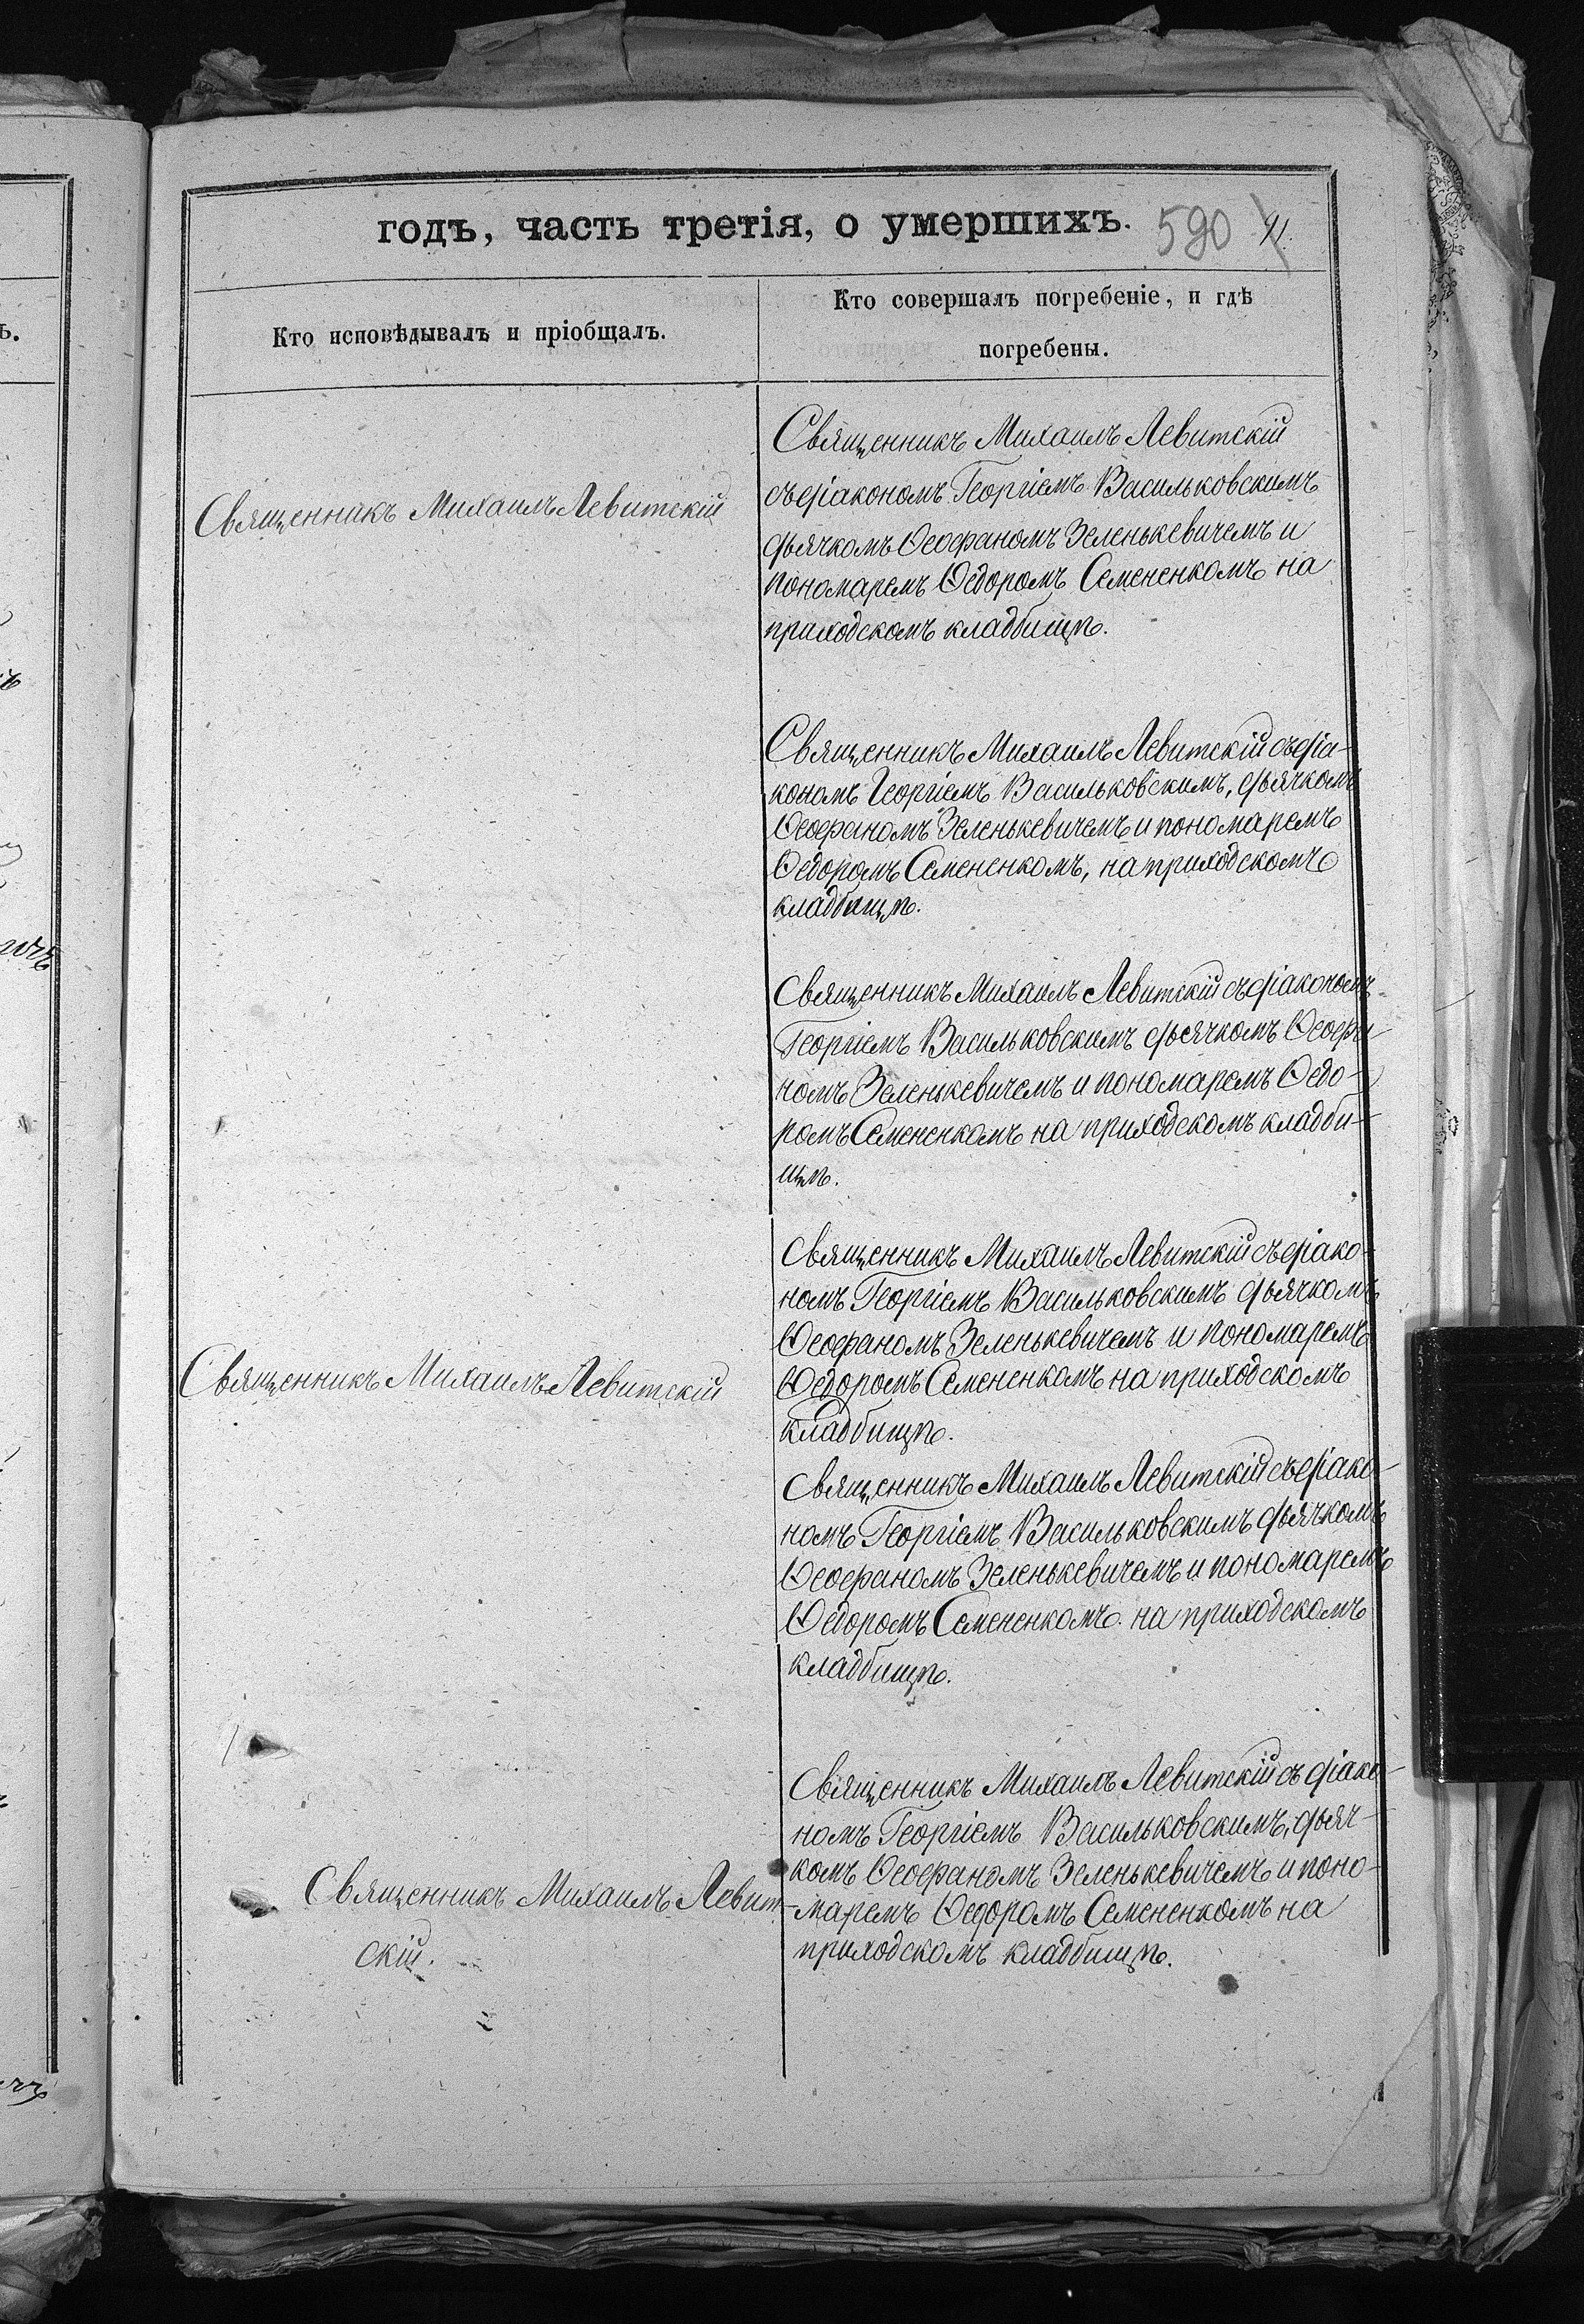 годъ, часть третія, о умершихъ. 590 91.
Кто исповѣдывалъ и пріобщалъ.
Кто совершалъ погребеніе, и гдѣ
погребены.
Священникъ Михаилъ Левитскій
Священникъ Михаилъ Левитскій
съ діакономъ Георгіемъ Васильковскимъ
дьячкомъ Ѳеофаномъ Зеленькевичемъ и
пономаремъ Ѳедоромъ Семененкомъ на
приходскомъ кладбищѣ.
Священникъ Михаилъ Левитскій съ діа-
кономъ Георгіемъ Васильковскимъ, дьячкомъ
Ѳеофаномъ Зеленькевичемъ и пономаремъ
Ѳедоромъ Семененкомъ, на приходскомъ
кладбищѣ.
Священникъ Михаилъ Левитскій съ діакономъ
Георгіемъ Васильковскимъ дьячкомъ Ѳеофа-
номъ Зеленькевичемъ и пономаремъ Ѳедо-
ромъ Семененкомъ на приходскомъ кладби-
щѣ.
Священникъ Михаилъ Левитскій
Священникъ Михаилъ Левитскій съ діако-
номъ Георгіемъ Васильковскимъ дьячкомъ
Ѳеофаномъ Зеленькевичемъ и пономаремъ
Ѳедоромъ Семененкомъ на приходскомъ
кладбищѣ.
Священникъ Михаилъ Левитскій съ діако-
номъ Георгіемъ Васильковскимъ дьячкомъ
Ѳеофаномъ Зеленькевичемъ и пономаремъ
Ѳедоромъ Семененкомъ на приходскомъ
кладбищѣ.
Священникъ Михаилъ Левит-
скій.
Священникъ Михаилъ Левитскій съ діако-
номъ Георгіемъ Васильковскимъ, дьяч-
комъ Ѳеофаномъ Зеленькевичемъ и поно-
маремъ Ѳедоромъ Семененкомъ на
приходскомъ кладбищѣ.